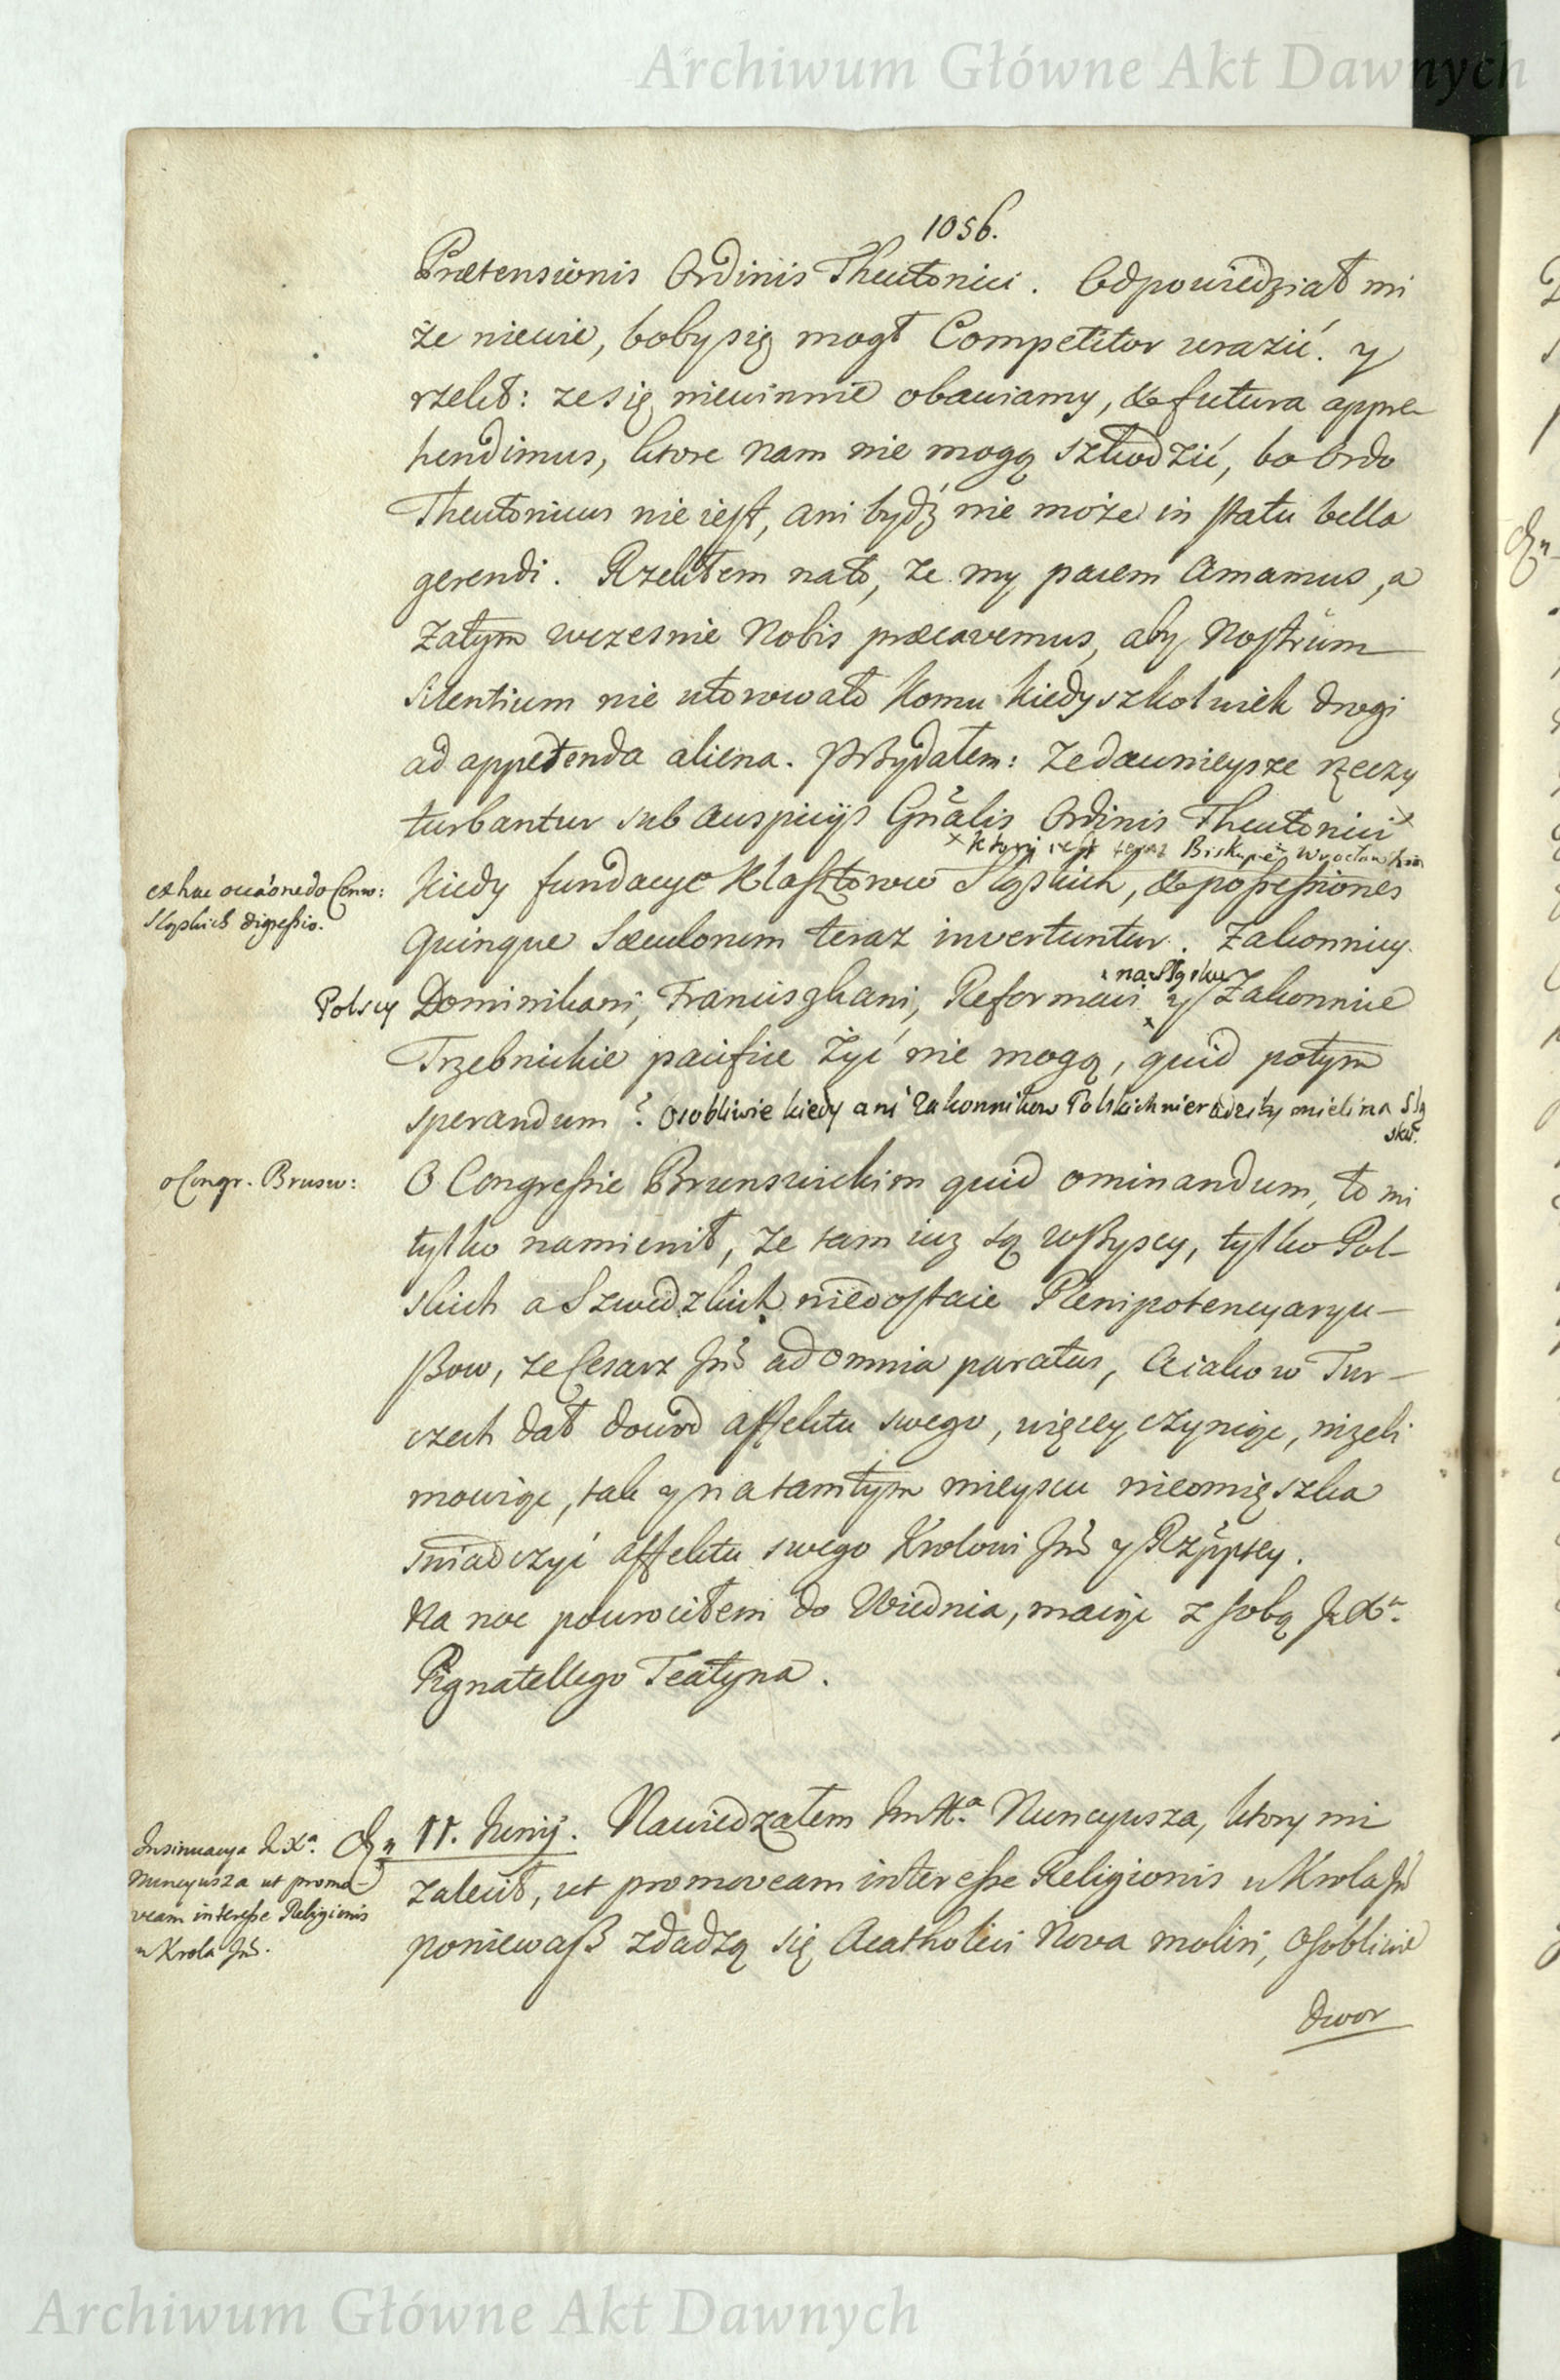 Archiwum Główne Akt Dawnych
1056.
Prætensionis Ordinis Theutonici. Odpowiedział mi
że niewie, boby się mogł Competitor urazić. y
rzekł: ze się niewinnie obawiamy, & futura appre-
hendimus, ktore nam nie mogą szkodzić, bo Ordo
Theutonicus nie iest, ani bydź nie może in statu bella
gerendi. Rzekłem nato, że my pacem amamus, a
zatym wczesnie Nobis præcavemus, aby Nostrum
silentium nie utorowało komu kiedyszkolwiek drogi
ad appetenda aliena. Przydałem: że dawnieysze rzeczy
turbantur sub auspicijs Gnalis Ordinis Theutonici x
x ktory iest teraz Biskupem Wrocławskim
ex hac occaone do Conw:
Sląskich digressio.
kiedy fundacye Klasztorow Sląskich, & possessiones
quinque Sæculorum teraz invertuntur. Zakonnicy
Polscy Dominikani, Franciszkani, Reformaci x na Sląsku y Zakonnice
Trzebnickie pacifice żyć nie mogą, quid potym
sperandum? osobliwie kiedy ani Zakonnikow Polskich nieradziby mieli na Slą
sku.
o Congr. Brusw:
O Congressie Brunswickim quid ominandum, to mi
tylko namienił, że tam iuz są wszyscy, tylko Pol-
skich a Szwedzkich niedostaie Plenipotencyaryu-
szow, że Cesarz Jmć ad omnia paratus, a iako w Tur-
czech dał dowod affektu swego, więcey czyniąc, niżeli
mowiąc, tak y na tamtym mieyscu nieomięszka
swiadczyć affektu swego Krolowi Jmć y Rzpptey.
Na noc powrociłem do Wiednia, maiąc z sobą JeXa.
Pignatellego Teatyna.
Insinuacya JeXa.
Nuncyusza ut promo-
veam interesse Religionis
u Krola Jmć.
Dn 11. Junij. Nawiedzałem JmXa. Nuncyusza, ktory mi
zalecił, ut promoveam interesse Religionis u Krola Jmć
poniewasz zdadzą się Acatholici Nova moliri, osobliwie
dwor
Archiwum Główne Akt Dawnych